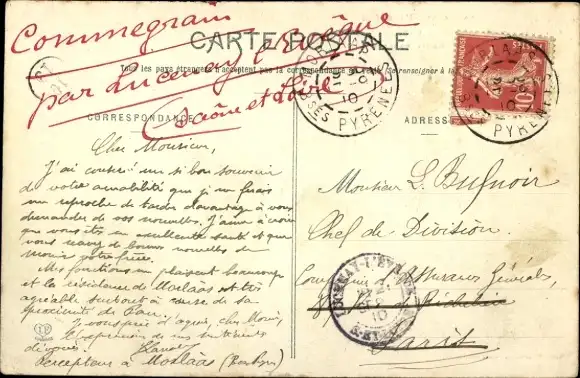 Commegrain
par Lucenay l'Evêque
Saône et Loire
CARTE POSTALE
Tous les pays étrangers n'acceptent pas la correspondance au recto (se renseigner à la
CORRESPONDANCE
ADRESSE
MORLAAS
BSES PYRENEES
10
Cher Monsieur,
J'ai conservé un si bon souvenir
de votre amabilité que je me ferais
un reproche de tarder davantage à vous
demander de vos nouvelles. J'aime à croire
que vous êtes en excellente santé et que
vous avez de bonnes nouvelles de
Monsieur votre frère.
Mes fonctions me plaisent beaucoup
et la résidence de Morlaàs est très
agréable surtout à cause de sa
proximité de Pau.
Je vous prie d'agréer, cher Monsieur,
l'expression de mes sentiments
dévoués.
percepteur à Morlaàs (Bses Pyr.)
Monsieur L. Bugnoir
Chef de Division
Compagnie d'Assurances Générales,
Rue Richelieu
Paris
LUCENAY-L'EVEQUE